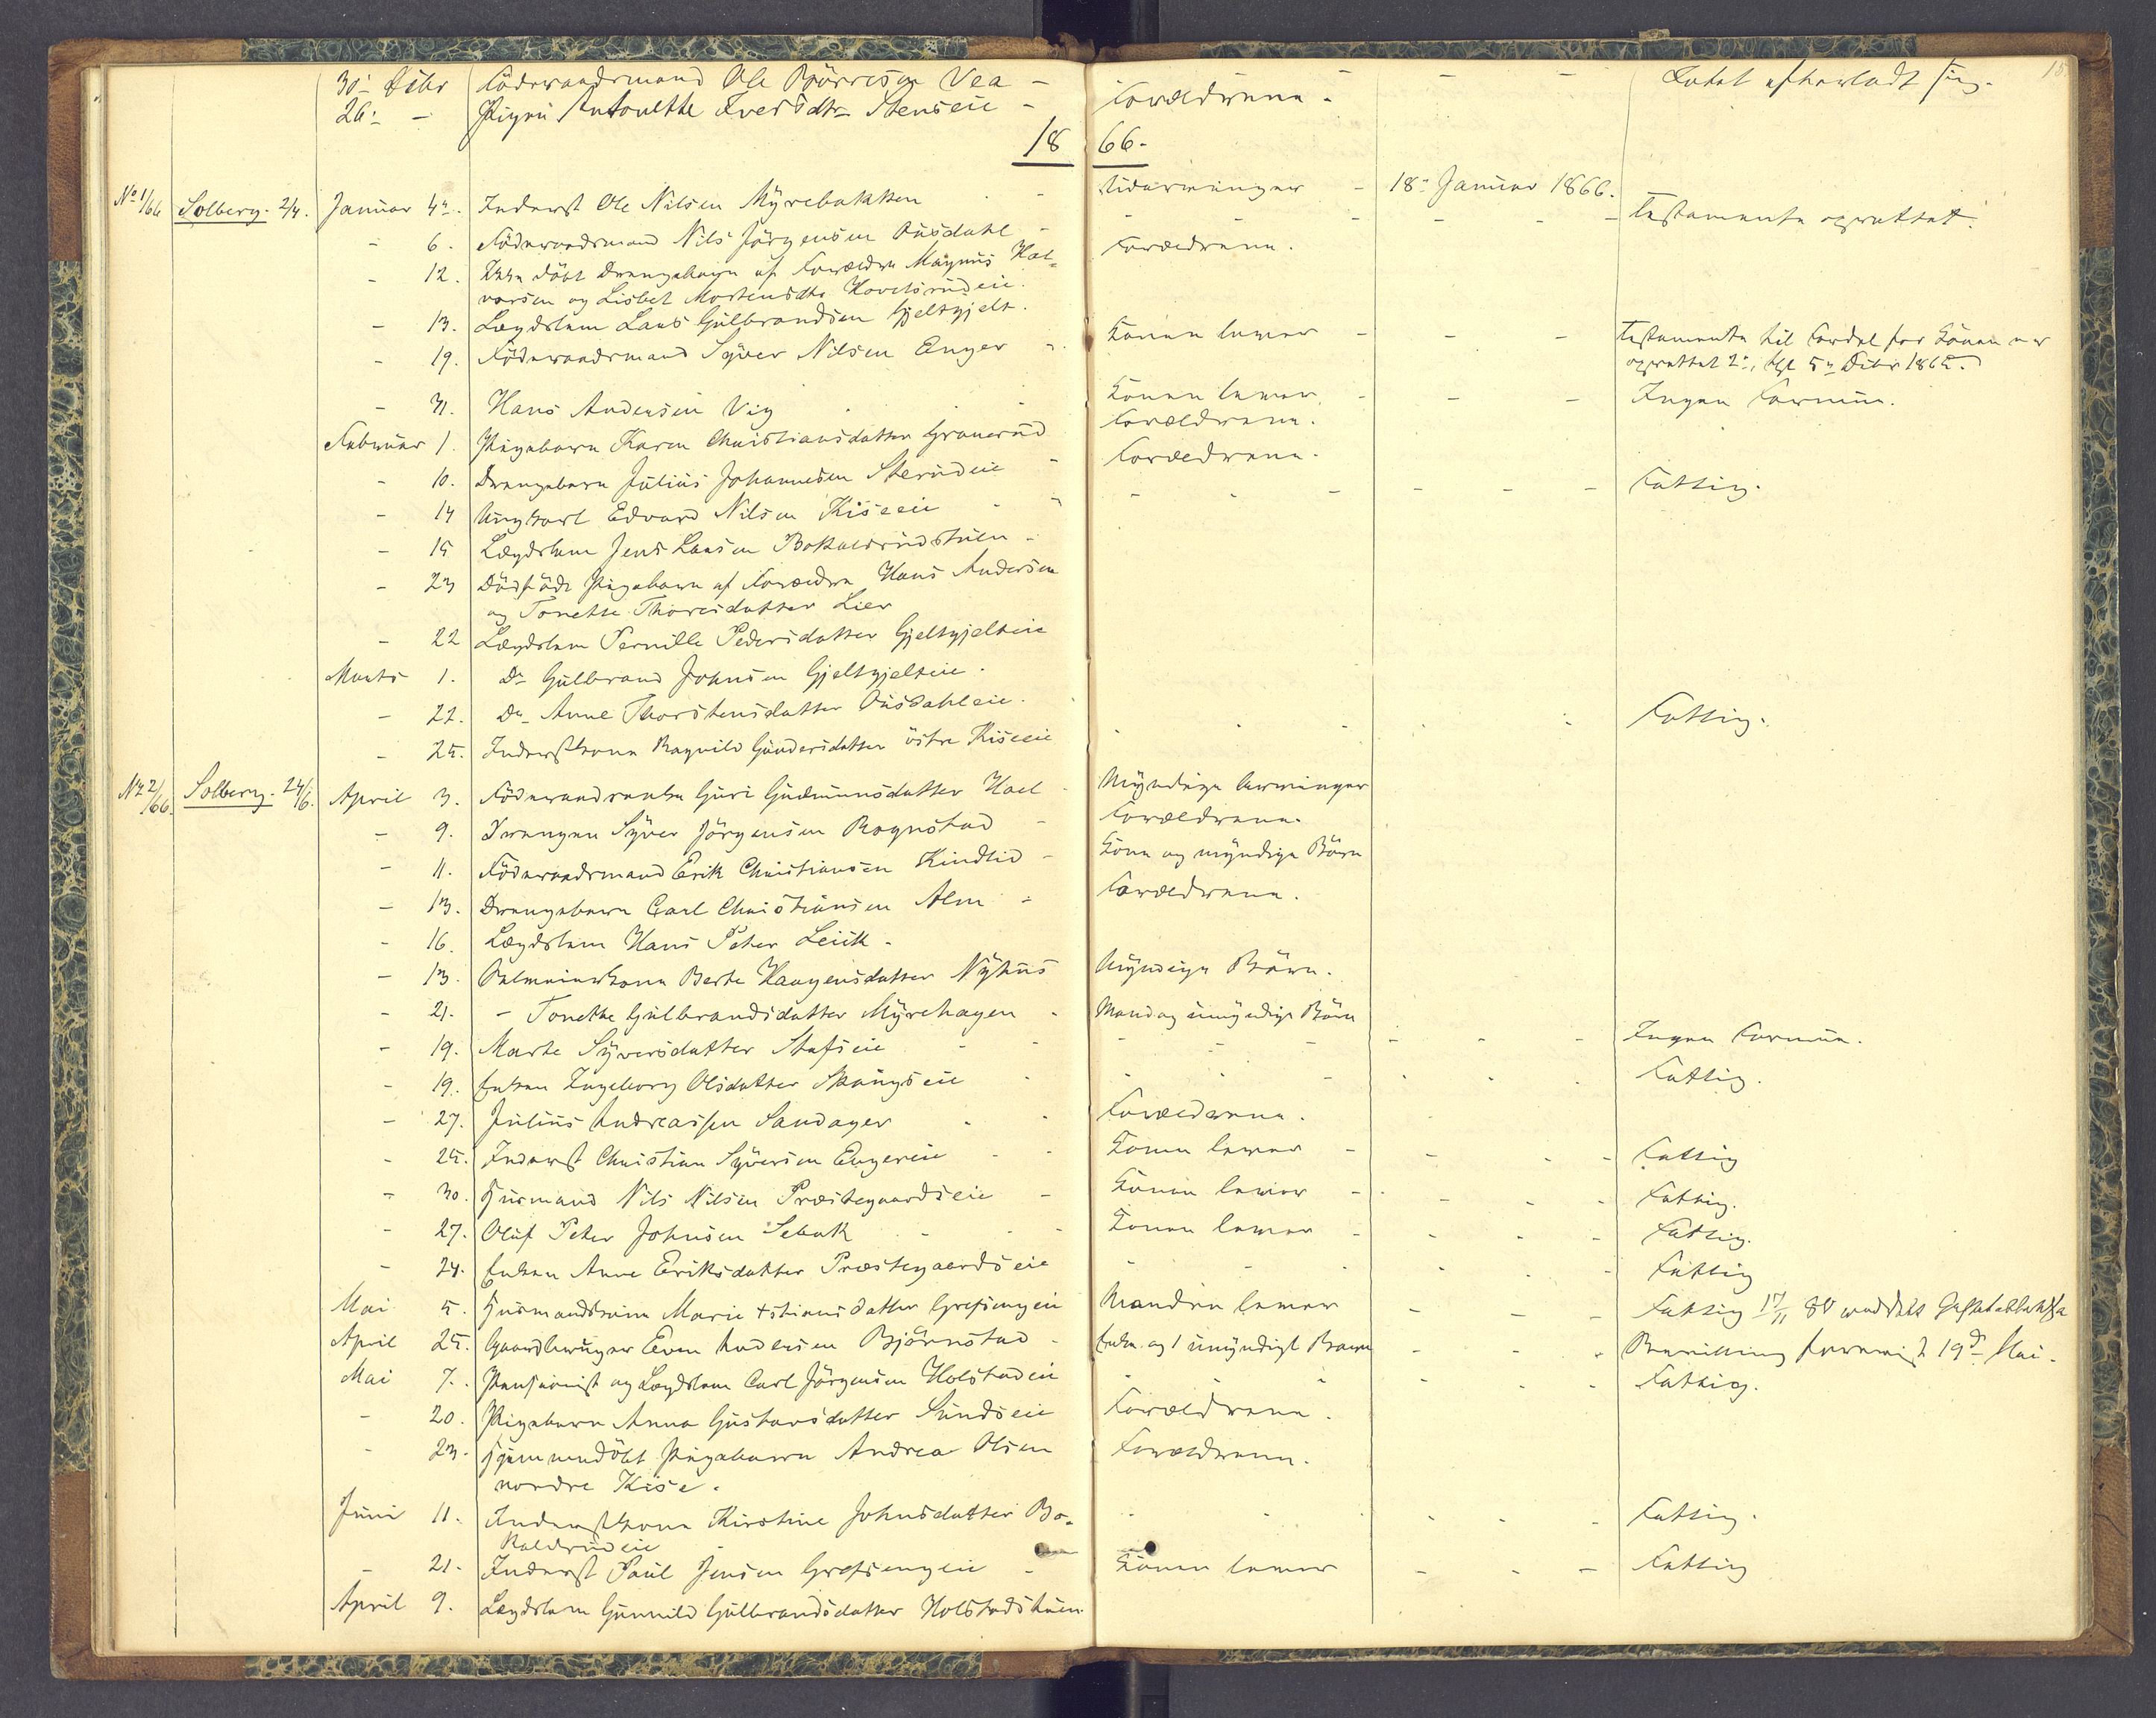 15
30- Debr Föderaadsmand Ole Börresen Vea - - - - Intet efterladt sig.
26 - Pigen Antonette Iversdtr Stenseie - Forældrene.
1866.
No 1/66 Solberg 2/4. Januar 4. Inderst Ole Nilsen Myrebakken - Udarvinger - 18 Januar 1866.
- 6. Föderaadsmand Nils Jörgensen Ousdahl - Testamente oprettet.
- 12. Ikke döbt Drengebarn af Forældre Magnus Hal- Forældrene.
vorsen og Lisbet Mortensdtr Hovelsrudeie.
- 13. Lægdslem Lars Gulbrandsen Gjeltgjelt.
- 19. Föderaadsmand Syver Nilsen Enger - Konen lever - - - Testamente til Fordel for Konen er
oprettet 5 Debr 1865.
- 31. Hans Andersen Vig - Konen lever - - - Ingen Formue.
Februar 1. Pigebarn Karen Christiansdatter Granerud Forældrene.
- 10. Drengebarn Julius Johannesen Sterudeie - Forældrene.
- 14 Ungkarl Edvard Nilsen Kiseeie - - - - - - Fattig.
- 15 Lægdslem Jens Larsen Bokalsrudstuen -
- 23 Dödfödt Pigebarn af Forældre Hans Andersen
og Tonette Thoresdatter Lier
- 22 Lægdslem Pernille Pedersdatter Gjeltgjelteie
Marts 1. Do Gulbrand Johnsen Gjeltgjelteie.
- 22. Do Anne Thorstensdatter Ousdahleie.
- 25. Inderstkone Ragnild Gundersdatter östre Kiseeie - - - - - Fattig.
No 2/66. Solberg 24/6. April 3. Föderaadsenke Guri Gudmunsdatter Hoel - Myndige Arvinger
- 9. Drengen Syver Jörgensen Rognstad - Forældrene.
- 11. Föderaadsmand Erik Christiansen Kindlid - Kone og myndige Börn
- 13. Drengebarn Carl Christiansen Alm - Forældrene.
- 16. Lægdslem Hans Peter Leiik -
- 13. Pulmagerkone Berte Haagensdatter Nyhus Myndige Börn.
- 21. - Tonette Gulbrandsdatter Myrehagen - Mand og umyndige Börn
- 19. Marte Syversdatter Stafseie - - - - - - Ingen Formue.
- 19. Enken Ingeborg Olsdatter Skougseie - - - - - Fattig.
- 27. Julius Andreassen Sandager - - Forældrene.
- 25. Inderst Christian Syversen Engereie - - Konen lever - - - Fattig
- 30. Husmand Nils Nilsen Præstegaardseie - Konen lever - - - Fattig.
- 27. Oluf Peter Johnsen Sebak - - Konen lever - - - Fattig.
- 24. Enken Anne Eriksdatter Præstegaardseie - - - - - Fattig
Mai 5. Husmandskone Marie Xstiansdatter Grefsengeie Manden lever - - - Fattig 17/11 80
April 25. Gaardbruger Even Andersen Björnstad - Enke og 1 umyndigt Barn - - - Bevilling forevist 19de Mai.
Mai 7. Pensionist og Lægdslem Carl Jörgensen Holstadeie - - - - - Fattig.
- 20. Pigebarn Anna Gustavsdatter Sundseie Forældrene.
- 23. Hjemmedöbt Pigebarn Andrea Olsen Forældrene.
nordre Kise.
Juni 11. Inderstkone Kirstine Johnsdatter Bo- - - - - - Fattig.
kalsrudeie
- 21. Inderst Paul Jensen Grefsengeie - Konen lever - - - Fattig
April 9. Lægdslem Gunnild Gulbrandsdatter Holstadstuen